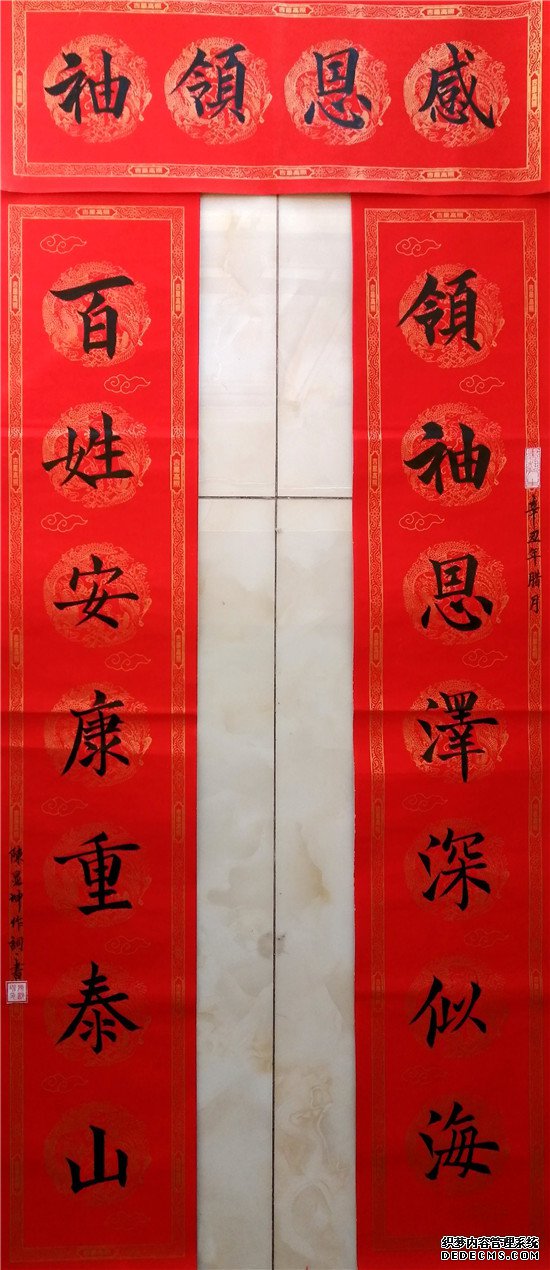 感恩領袖
領袖恩澤深似海
辛丑年腊月
百姓安康重泰山
作詞書
织梦内容管理系统
DEDECMS.COM